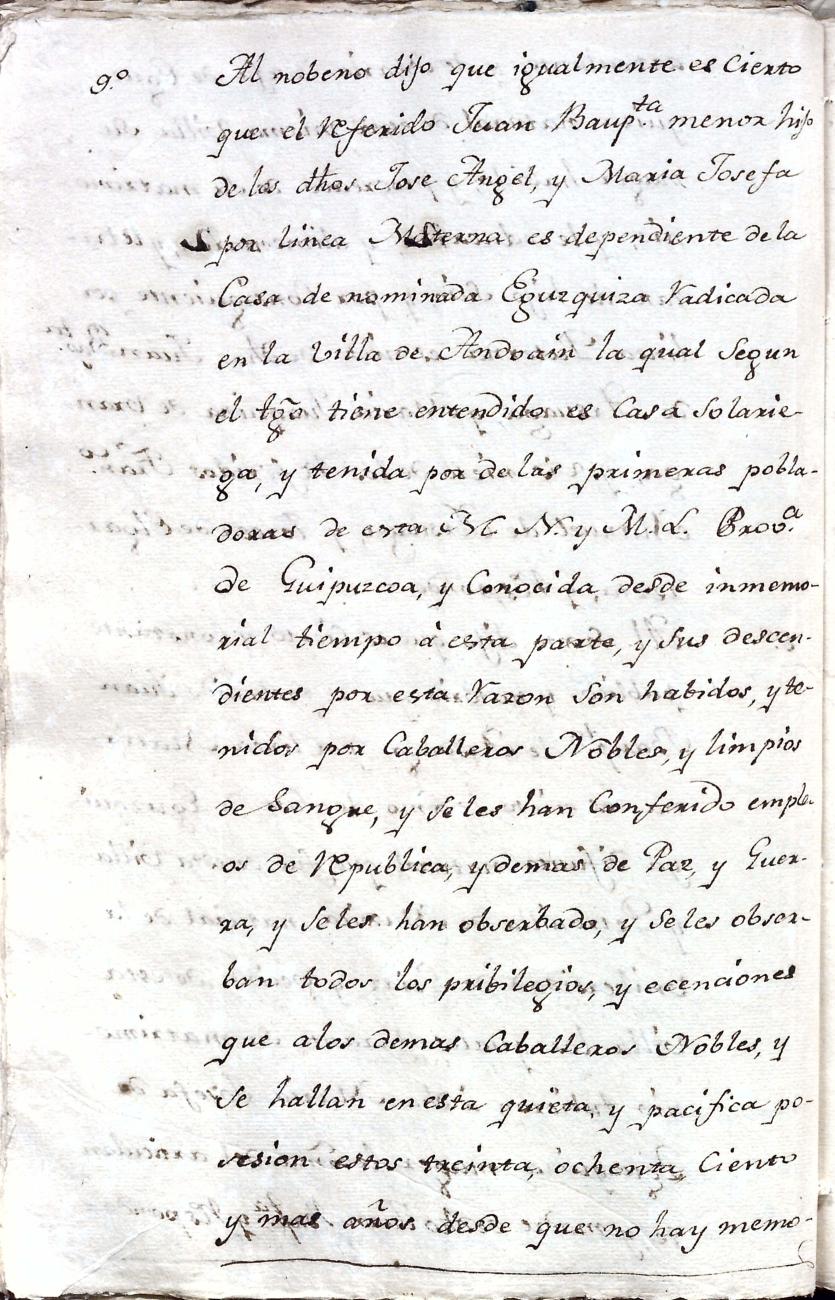 9.º Al nobeno dijo que igualmente es Cierto
que el Referido Juan Baupta menor hijo
de los dhos Jose Angel, y Maria Josefa
por linea Materna es dependiente de la
Casa de nominada Eguzquiza Radicada
en la Villa de Andoain la qual Segun
el tgo tiene entendido es Casa Solarie-
ga, y tenida por de las primeras pobla-
doras de esta M. N. y M. L. Prova
de Guipuzcoa, y Conocida desde inmemo-
rial tiempo á esta parte, y Sus descen-
dientes por esta Razon Son habidos, y te-
nidos por Caballeros Nobles, y limpios
de Sangre, y Se les han Conferido emple-
os de Republica, y demas de Paz, y Guer-
ra, y Seles han obserbado, y Se les obser-
ban todos los pribilegios, y ecenciones
que alos demas Caballeros Nobles, y
Se hallan en esta quieta, y pacifica po-
sesion estos treinta, ochenta, Ciento
y mas años desde que no hay memo-